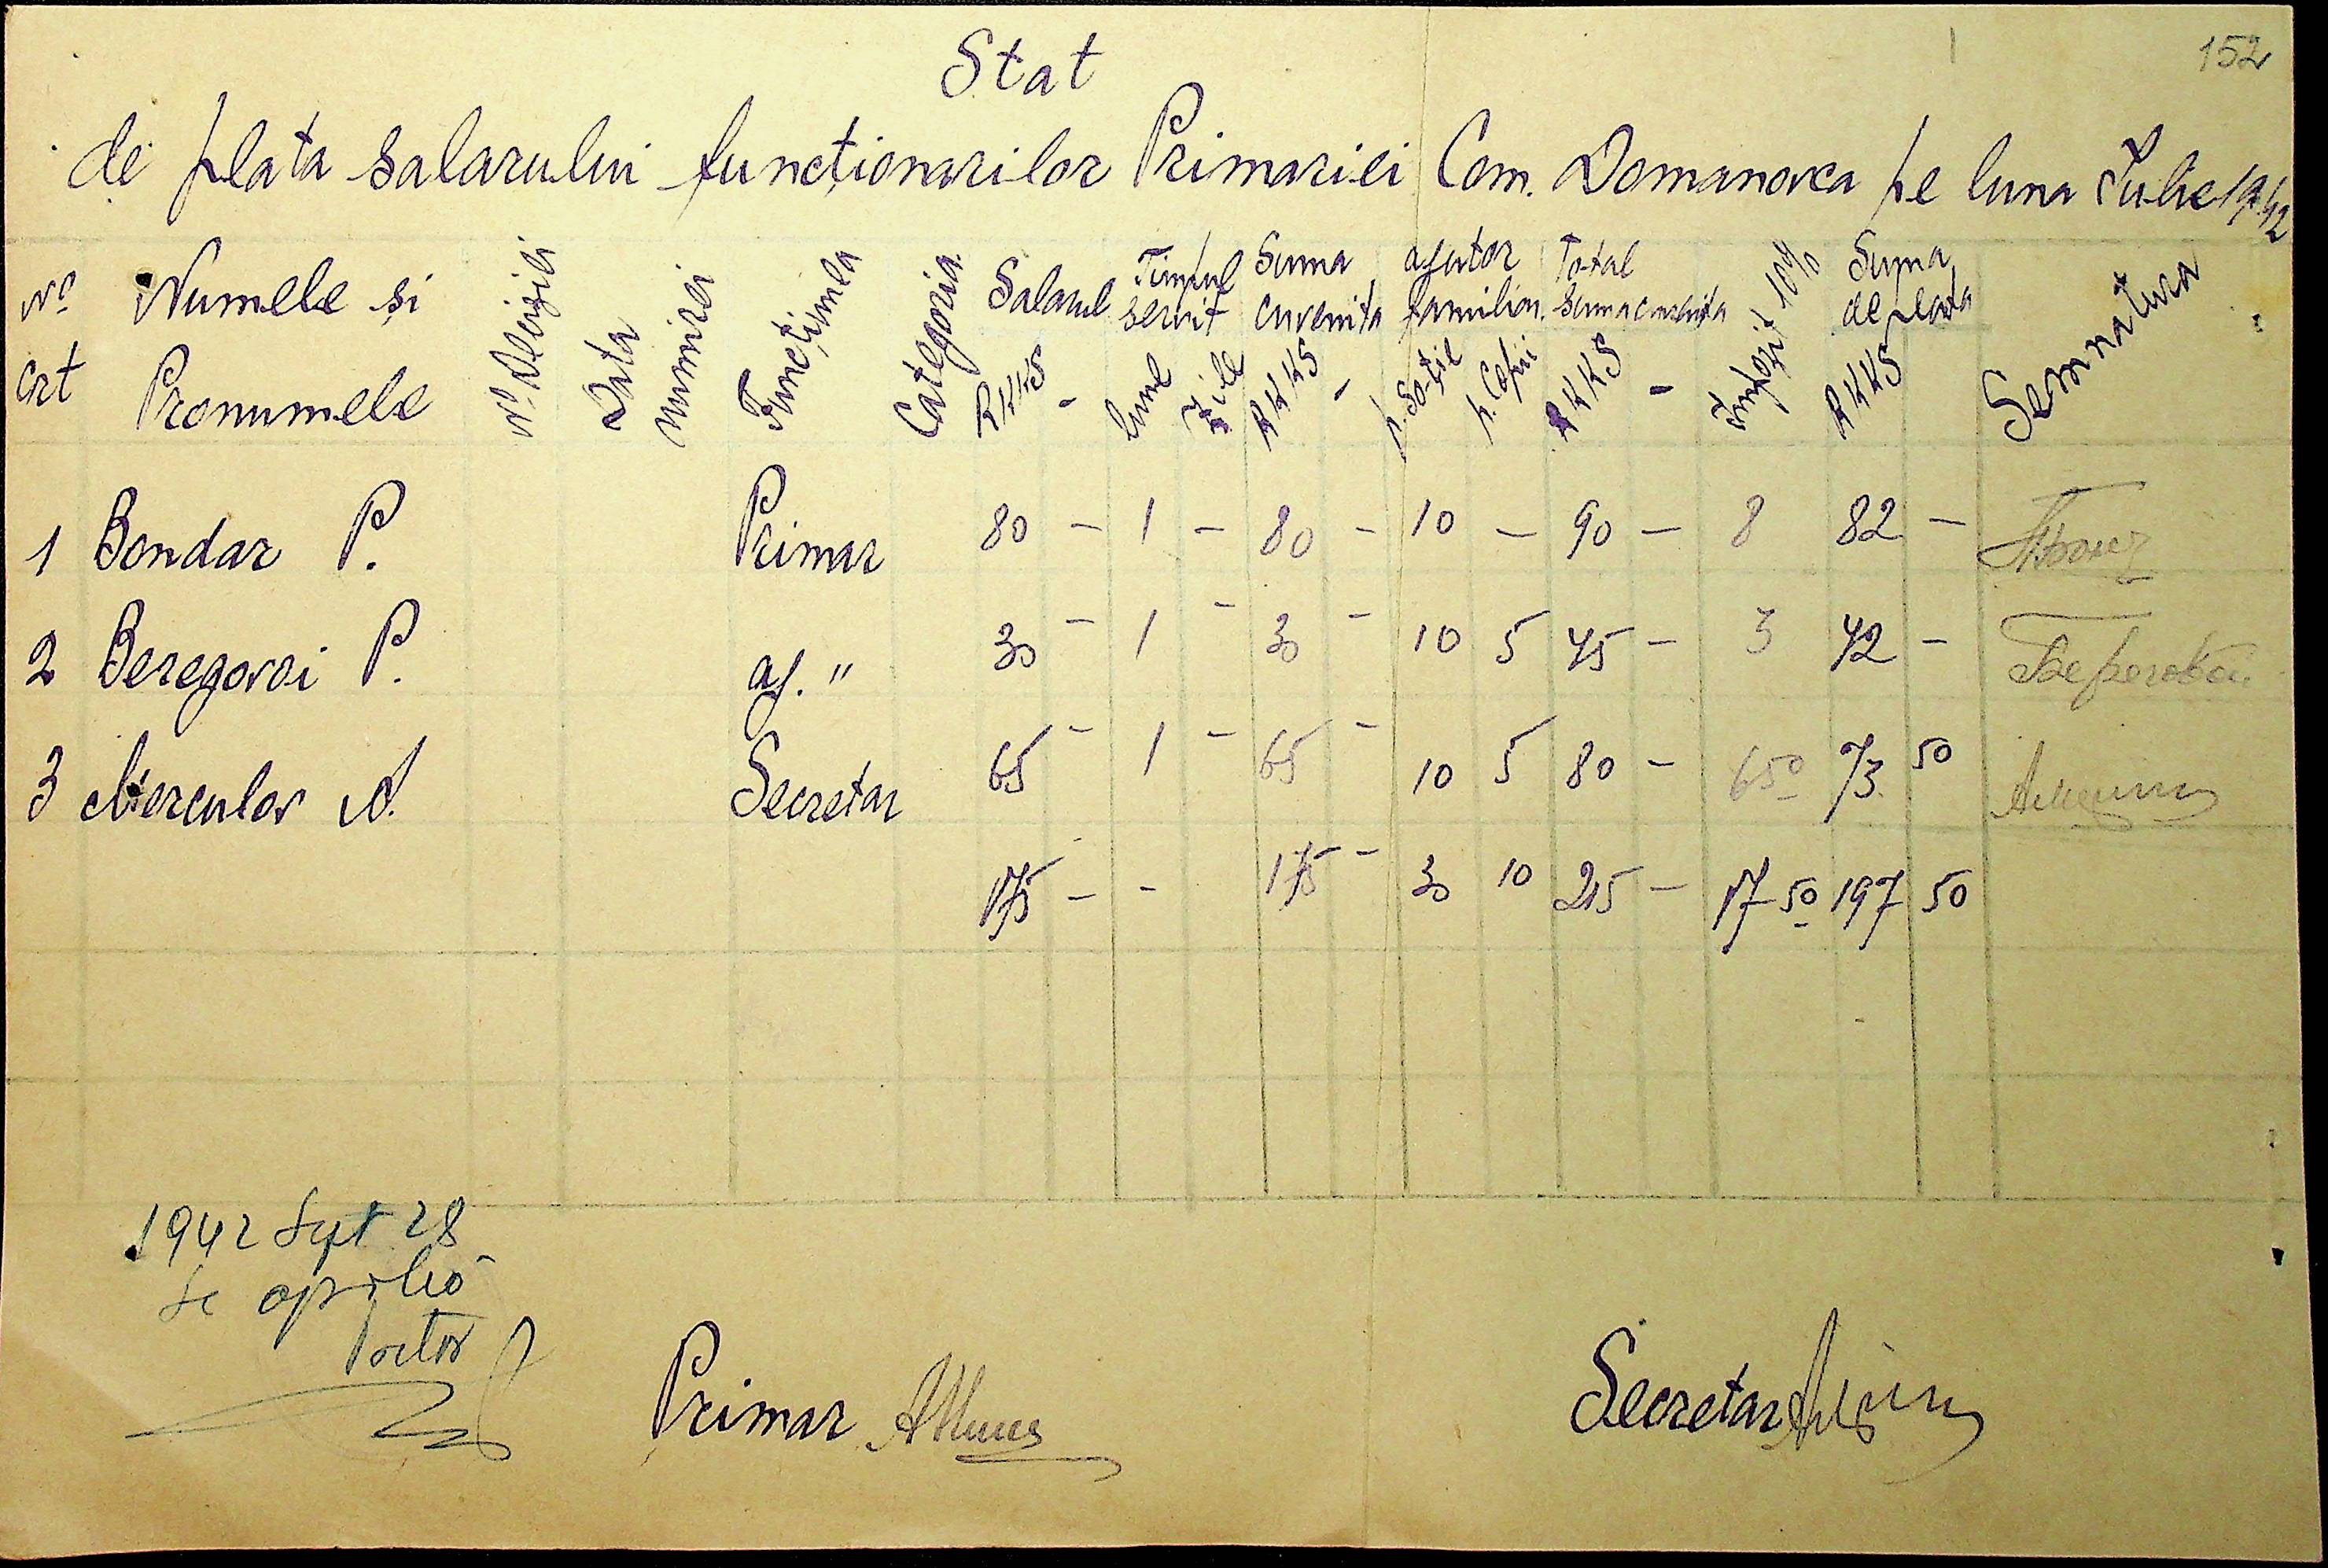 152
Stat
de plata salarului funcționarilor Primariei Com. Domanovca pe luna Iulie 1942
No crt
Numele si Pronumele
No. Decizii
Data numirei
Functiunea
Categoria
Salarul RKKS -
Timpul servit luni zile
Suma cuvenita RKKS -
ajutor familiar. p. Soție p. Copii
Total Suma cuvenita RKKS -
Impozit 10%
Suma de plata RKKS
Semnatura
1 Bondar P. Primar 80 - 1 - 80 - 10 - 90 - 8 82 -
2 Beregovoi P. aj. " 30 - 1 - 30 - 10 5 45 - 3 42 - Береговой
3 Merculov A. Secretar 65 - 1 - 65 - 10 5 80 - 6 50 73 50
175 - - 175 - 30 10 215 - 17 50 197 50
1942 Sept 28
Se aprobă
Pretor
Primar
Secretar